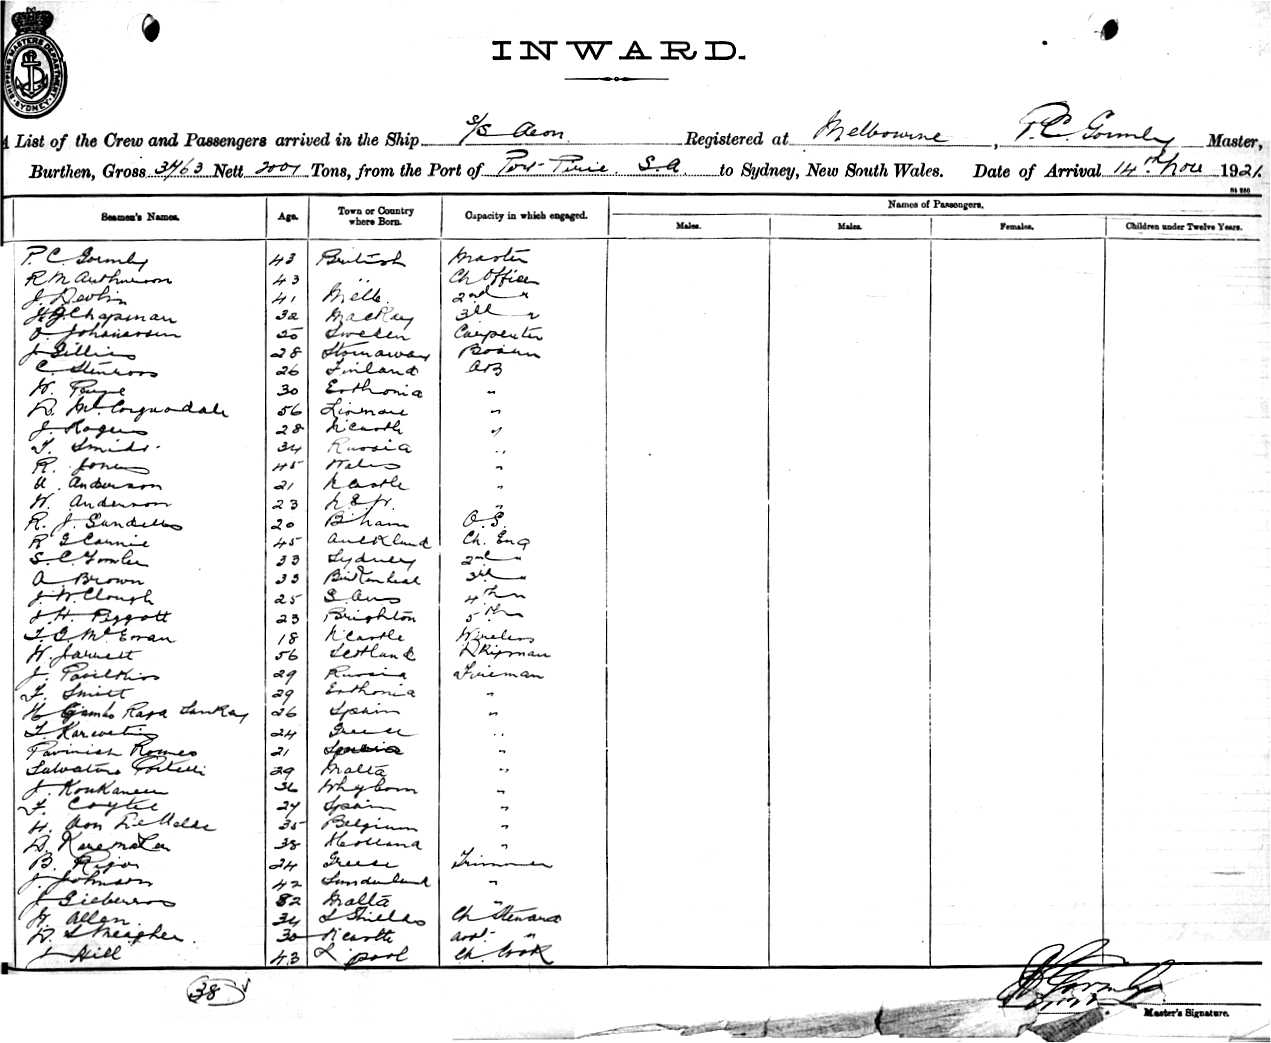 SHIPPING MASTERS DEPARTMENT SYDNEY
INWARD.
A List of the Crew and Passengers arrived in the Ship s/s Aeon Registered at Melbourne, P. C. Gormley Master,
Burthen, Gross 3763 Nett 2001 Tons, from the Port of Port Pirie S.A to Sydney, New South Wales. Date of Arrival 14th Nov 1921.
Seamen's Names. Age. Town or Country where Born. Capacity in which engaged. Names of Passengers.
Males. Males. Females. Children under Twelve Years.
P. C. Gormley 43 British Master
R McArthurson 43 " Ch Officer
J. Devlin 41 Melb. 2nd "
Chapman 32 MacKay 3rd "
O. Johanassen 50 Sweden Carpenter
J Gillies 28 Stornaway Bosun
C. Stenroos 26 Finland AB
W. 30 Esthonia "
D. McCorquodale 56 Lismore "
J. Rogers 28 N'castle "
T. Smids 34 Russia "
R. Jones 45 Wales "
A. Anderson 21 N'castle "
W. Anderson 23 "
R. J. Sundells 20 B'ham O.S.
R G Carnie 45 Auckland Ch. Eng
S. C. Fowler 33 Sydney 2nd "
A Brown 33 Birkenhead 3rd "
J. W. Clough 25 S. Aus 4th "
J. H. Piggott 23 Brighton 5th "
T. C. McEwan 18 N'castle Wireless
W. Jarrett 56 Scotland Dkipman
J. 29 Russia Fireman
F. Smitt 29 Esthonia "
26 Spain "
24 Greece "
Romeo 21 "
Salvatore Portelli 29 Malta "
J. Koukaneen 36 Whyborn "
F. 27 Spain "
H. Von De Velde 35 Belgium "
D. 38 Holland "
B. 24 Greece Trimmer
J. Johnson 42 Sunderland "
J 32 Malta "
H. Allen 34 S Shields Ch Steward
D. S Meagher 30 N'castle Asst "
J Hill 43 L'pool Ch. Cook
38
Master's Signature.